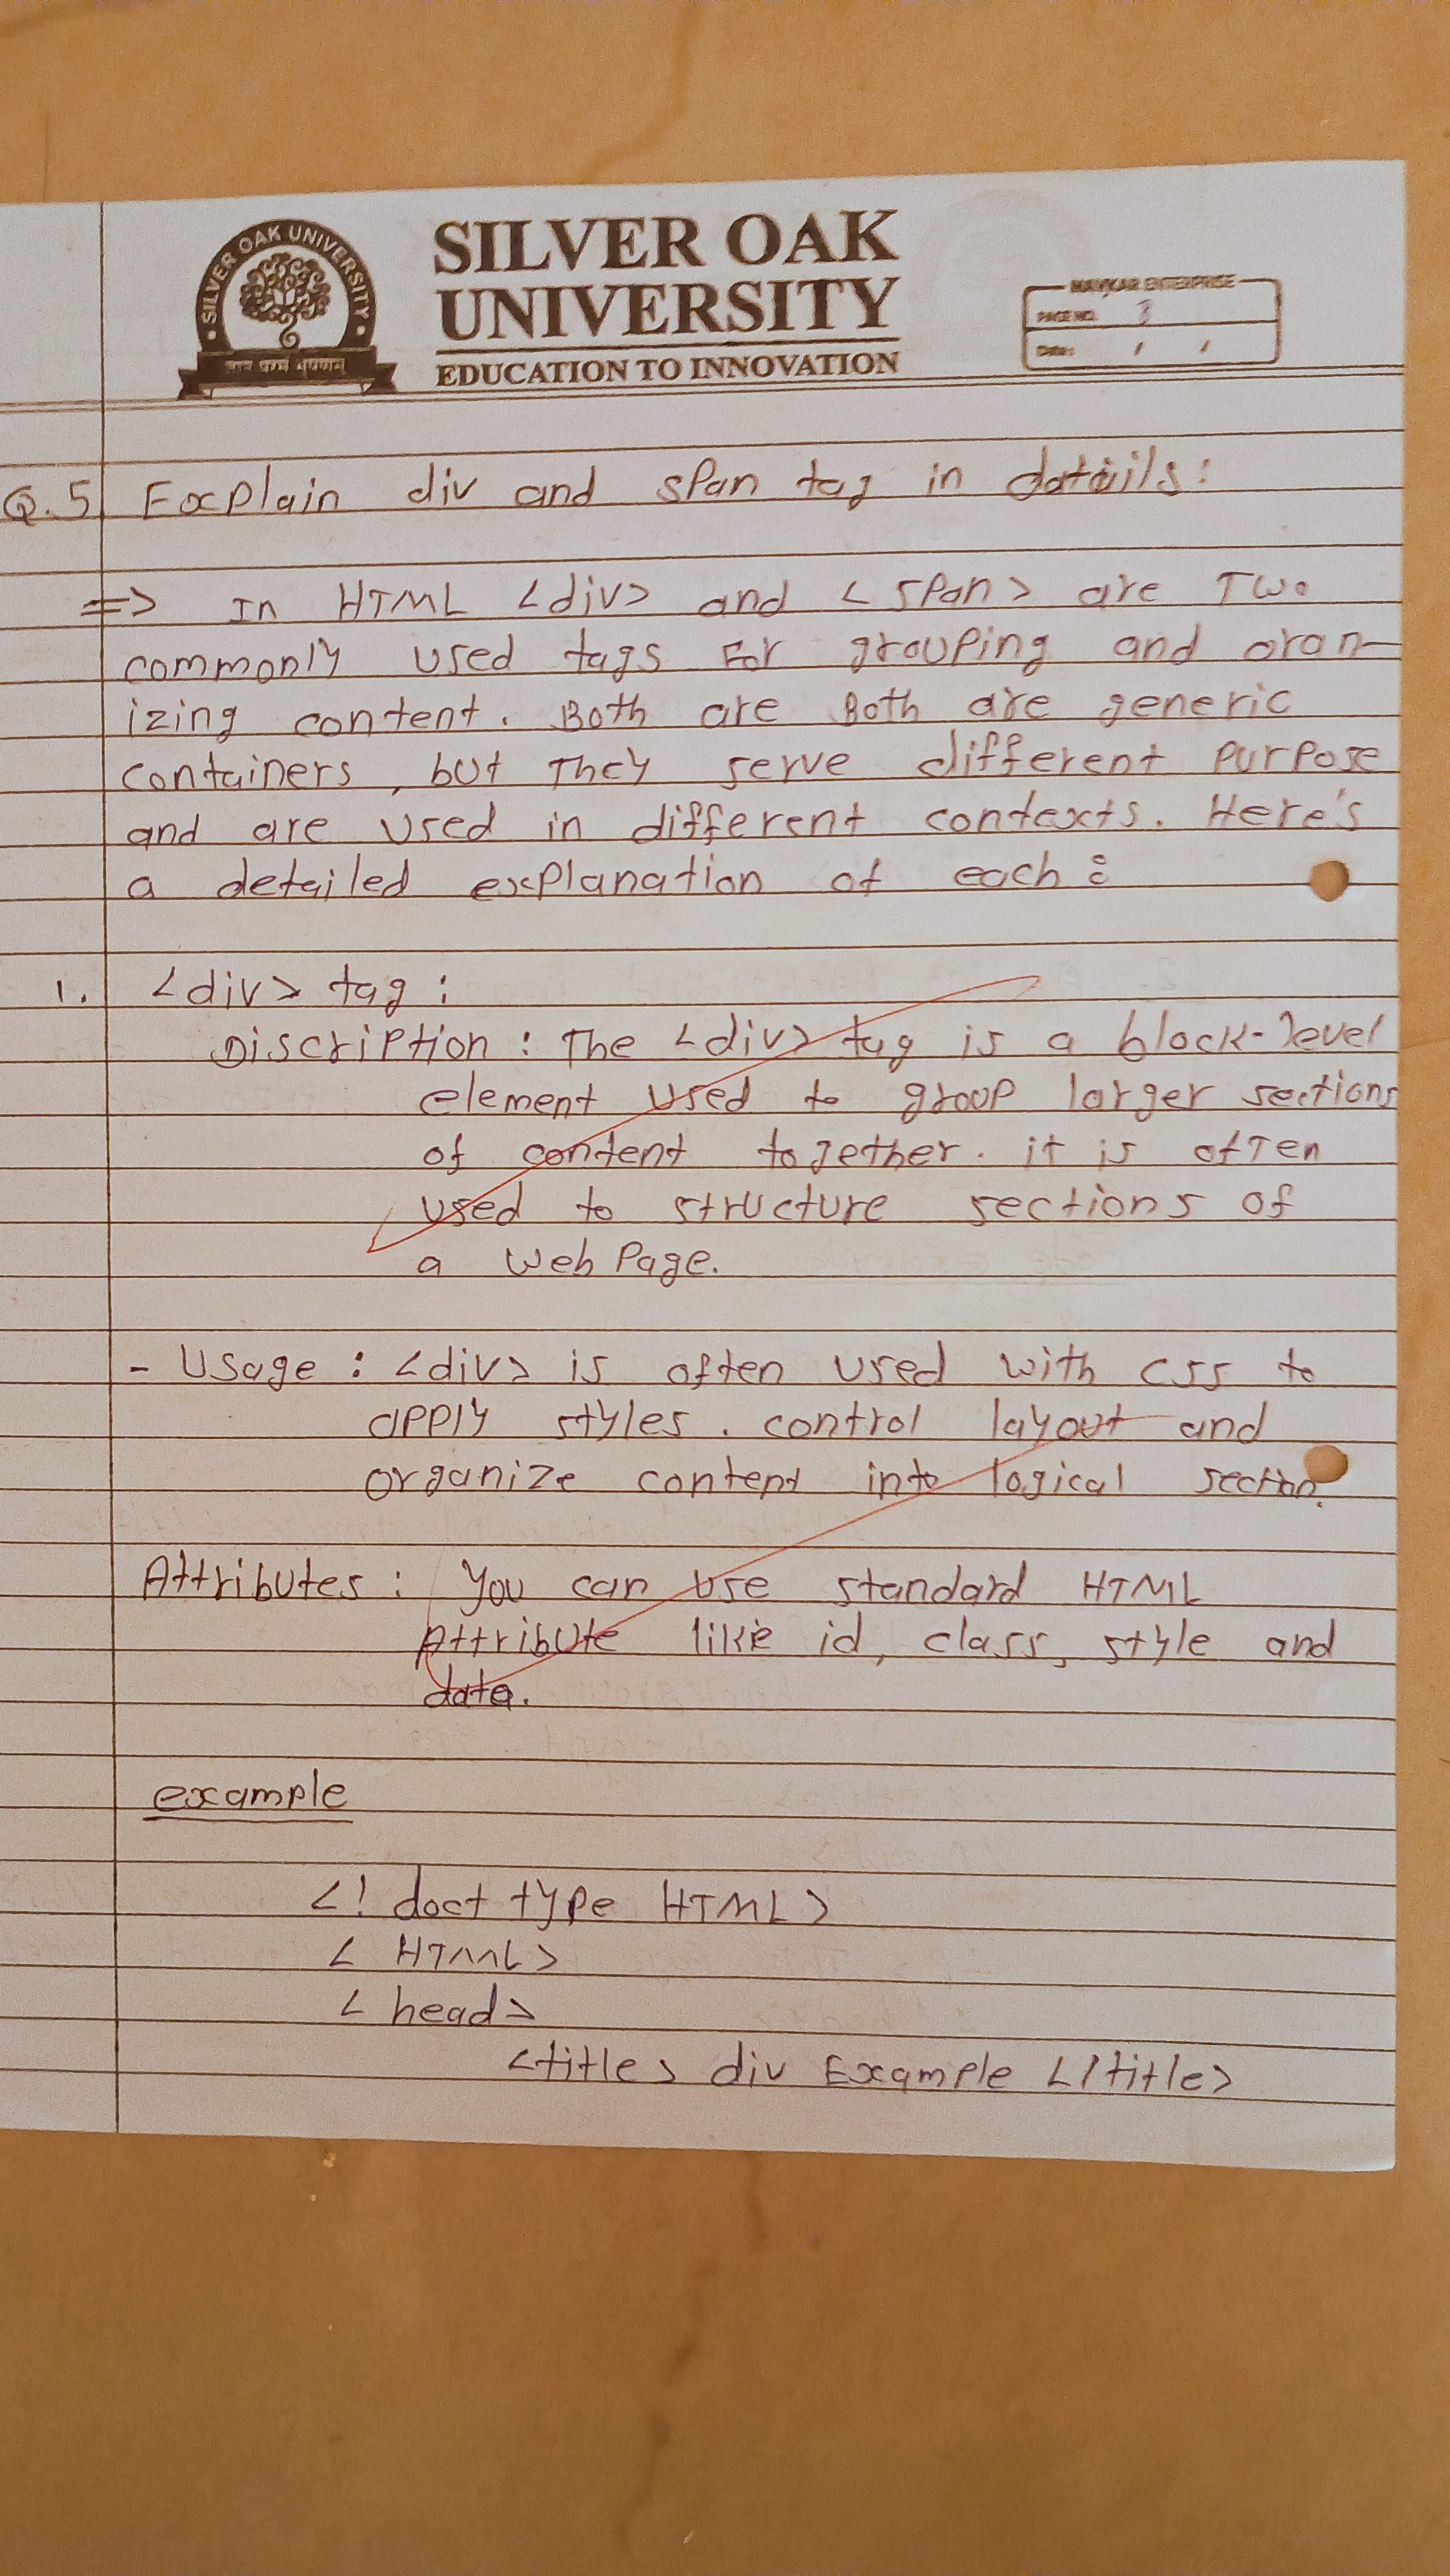 SILVER OAK UNIVERSITY
SILVER OAK
UNIVERSITY
EDUCATION TO INNOVATION
NAVKAR ENTERPRISE
PAGE NO. 3
Date: / /
Q.5 Explain div and span tag in datails:
=> In HTML <div> and <span> are Two
commonly used tags For grouping and oran-
izing content. Both are Both are generic
containers, but They serve different purpose
and are used in different contexts. Here's
a detailed explanation of each :
1. <div> tag :
Discription : The <div> tag is a block-level
element used to group larger sections
of content together. it is often
used to structure sections of
a web page.
- Usage : <div> is often used with css to
apply styles. control layout and
organize content into logical section.
Attributes : You can use standard HTML
Attribute like id, class, style and
data.
example
<! doct type HTML>
< HTML>
< head>
<title> div Example </title>